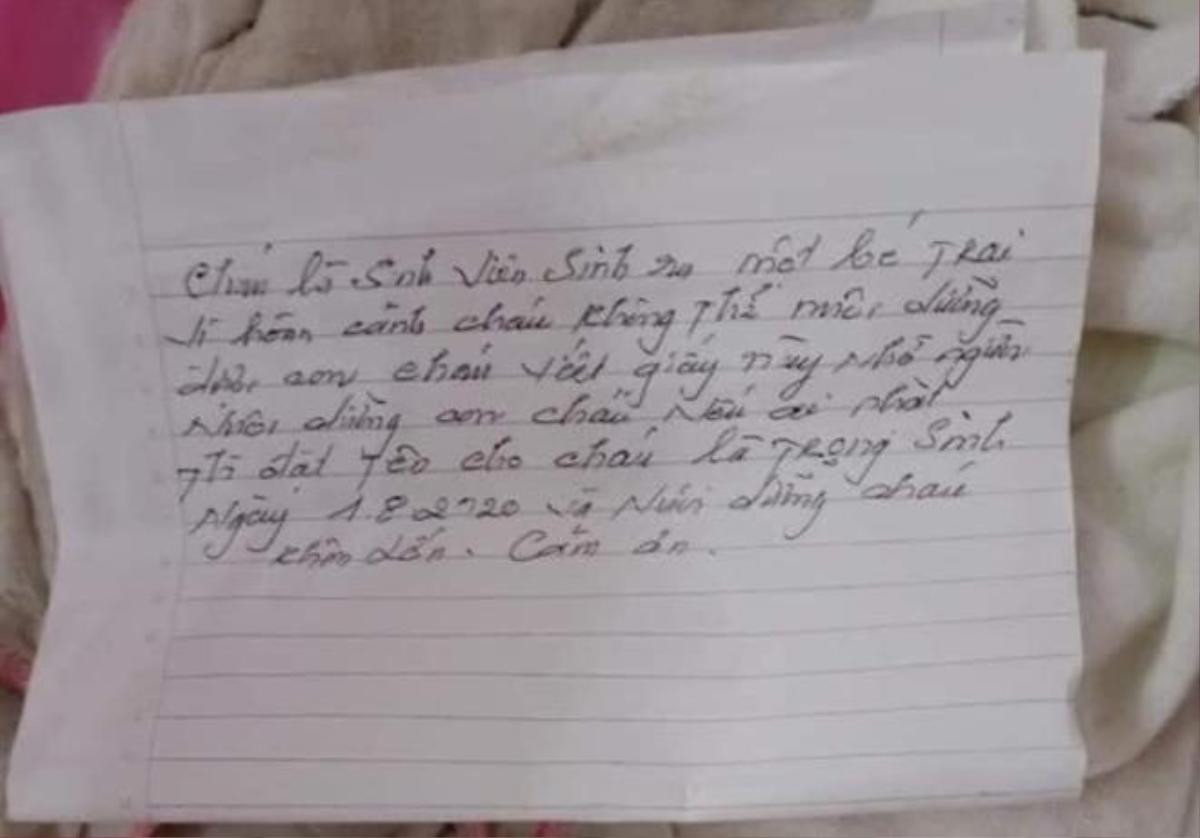 Cháu là Sinh viên Sinh ra một bé Trai
Vì hoàn cảnh cháu không Thể nuôi dưỡng
được con cháu viết giấy này nhờ người
Nuôi dưỡng con cháu Nếu ai nhặt
Thì đặt Tên cho cháu là Trọng Sinh
Ngày 1.8.2020 và Nuôi dưỡng cháu
khôn lớn. Cảm ơn.